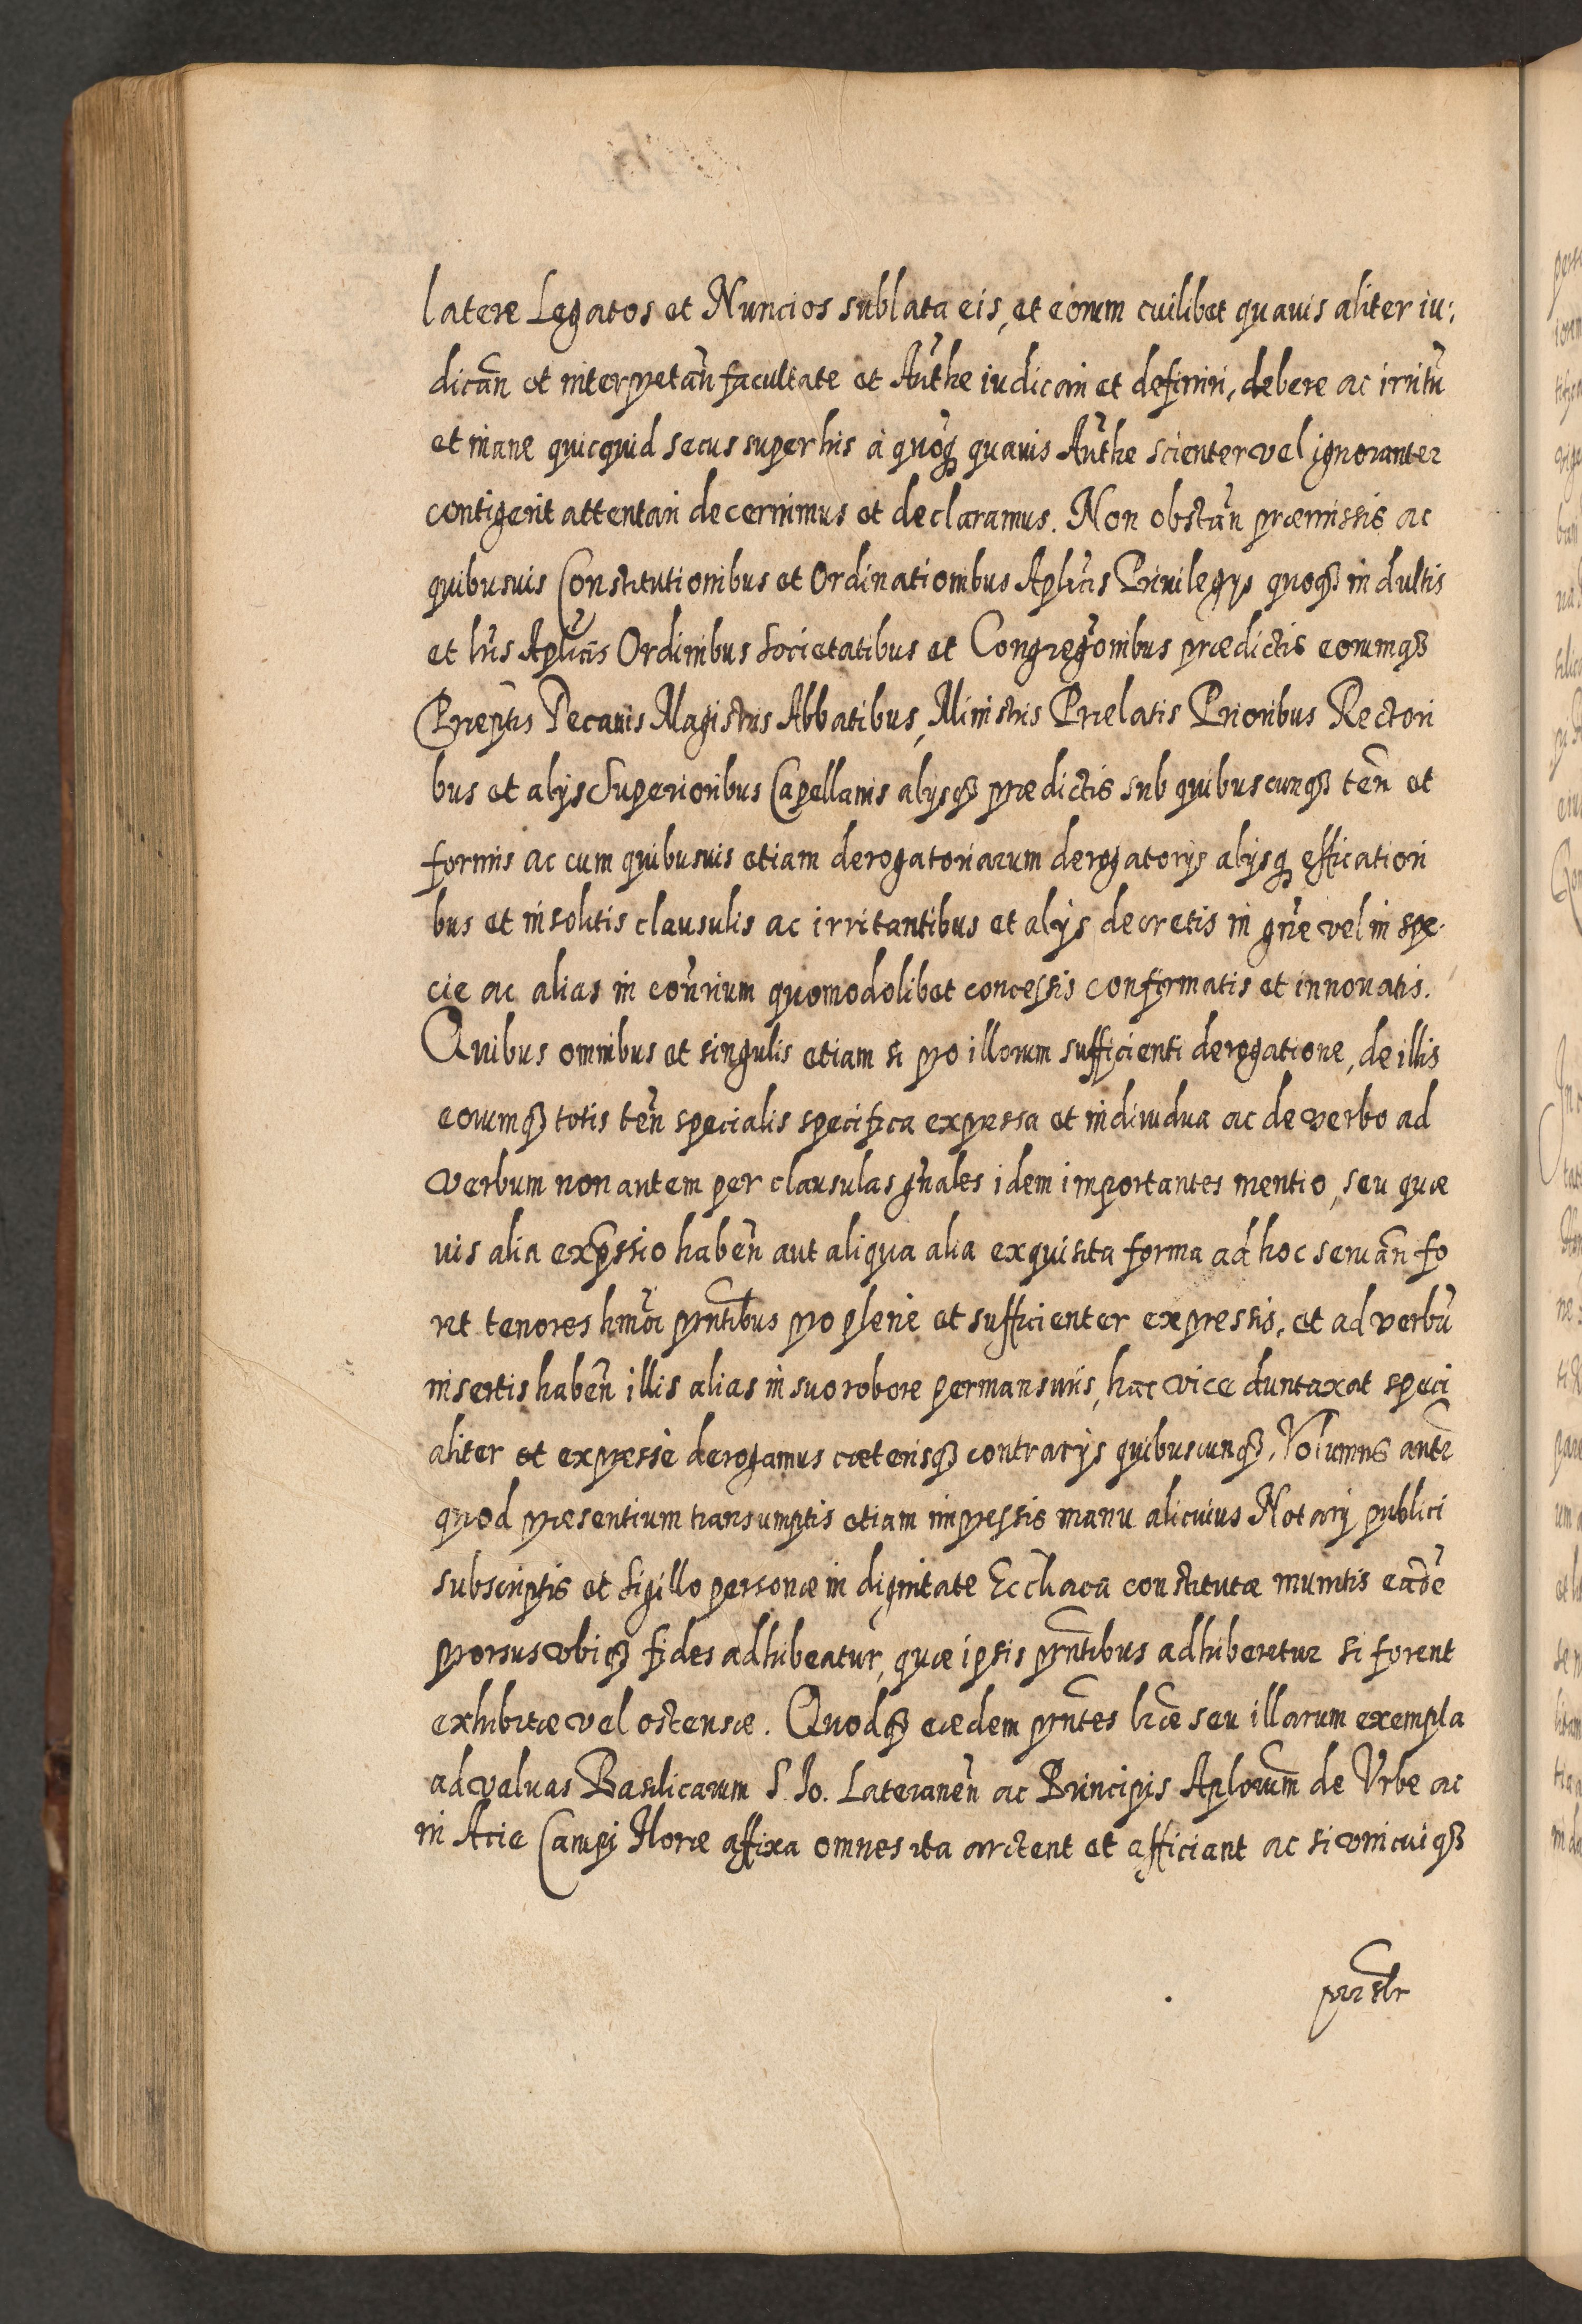 latere Legatos et Nuncios sublata eis, et eorum cuilibet quauis aliter iu:
dicañ et interpretañ facultate et Auth̃e iudicari et definiri, debere ac irritũ
et inane quicquid secus super his à quoq̃ quauis Auth̃e scienter vel ignoranter
contigerit attentari decernimus et declaramus. Non obstañ præmissis ac
quibusuis Constitutionibus et Ordinationibus Apl̃icis Priuilegijs quoqȝ indultis
et lr̃is Apl̃icis Ordinibus Societatibus et Congregõnibus prædictis eorumqȝ
Præp̃tis Decanis Magistris Abbatibus, Ministris Prælatis Prioribus Rectori
bus et alijs Superioribus Capellanis alijsqȝ prædictis sub quibuscunqȝ teñ et
formis ac cum quibusuis etiam derogatoriarum derogatorijs alijsqȝ efficatiori
bus et insolitis clausulis ac irritantibus et alijs decretis in gñe vel in spe.
cie ac alias in coñrium quomodolibet concessis confirmatis et innouatis.
Quibus omnibus et singulis etiam si pro illorum sufficienti derogatione, de illis
eorumqȝ totis teñ specialis specifica expressa et indiuidua ac de verbo ad
verbum non autem per clausulas gñales idem importantes mentio, seu quæ
uis alia exp̃ssio habeñ aut aliqua alia exquisita forma ad hoc seruañ fo
ret tenores hmõi pr̃ntibus pro plene et sufficienter expressis, et ad verbũ
insertis habeñ illis alias in suo robore permansuris, hac vice duntaxat speci
aliter et expressè derogamus cæterisqȝ contrarijs quibuscunqȝ. Volumus autẽ
quod præsentium transumptis etiam impressis manu alicuius Notarij publici
subscriptis et sigillo personæ in dignitate Eccl̃iacã constitutæ munitis eãdẽ
prorsus vbiqȝ fides adhibeatur, quæ ipsis pr̃ntibus adhiberetur si forent
exhibitæ vel ostensæ. Quodqȝ eædem pr̃ntes lr̃æ seu illarum exempla
ad valuas Basilicarum S. Jo. Lateraneñ ac Principis Apl̃orum de Vrbe ac
in Acie Campi Floræ affixa omnes ita arctent et afficiant ac si vnicuiqȝ